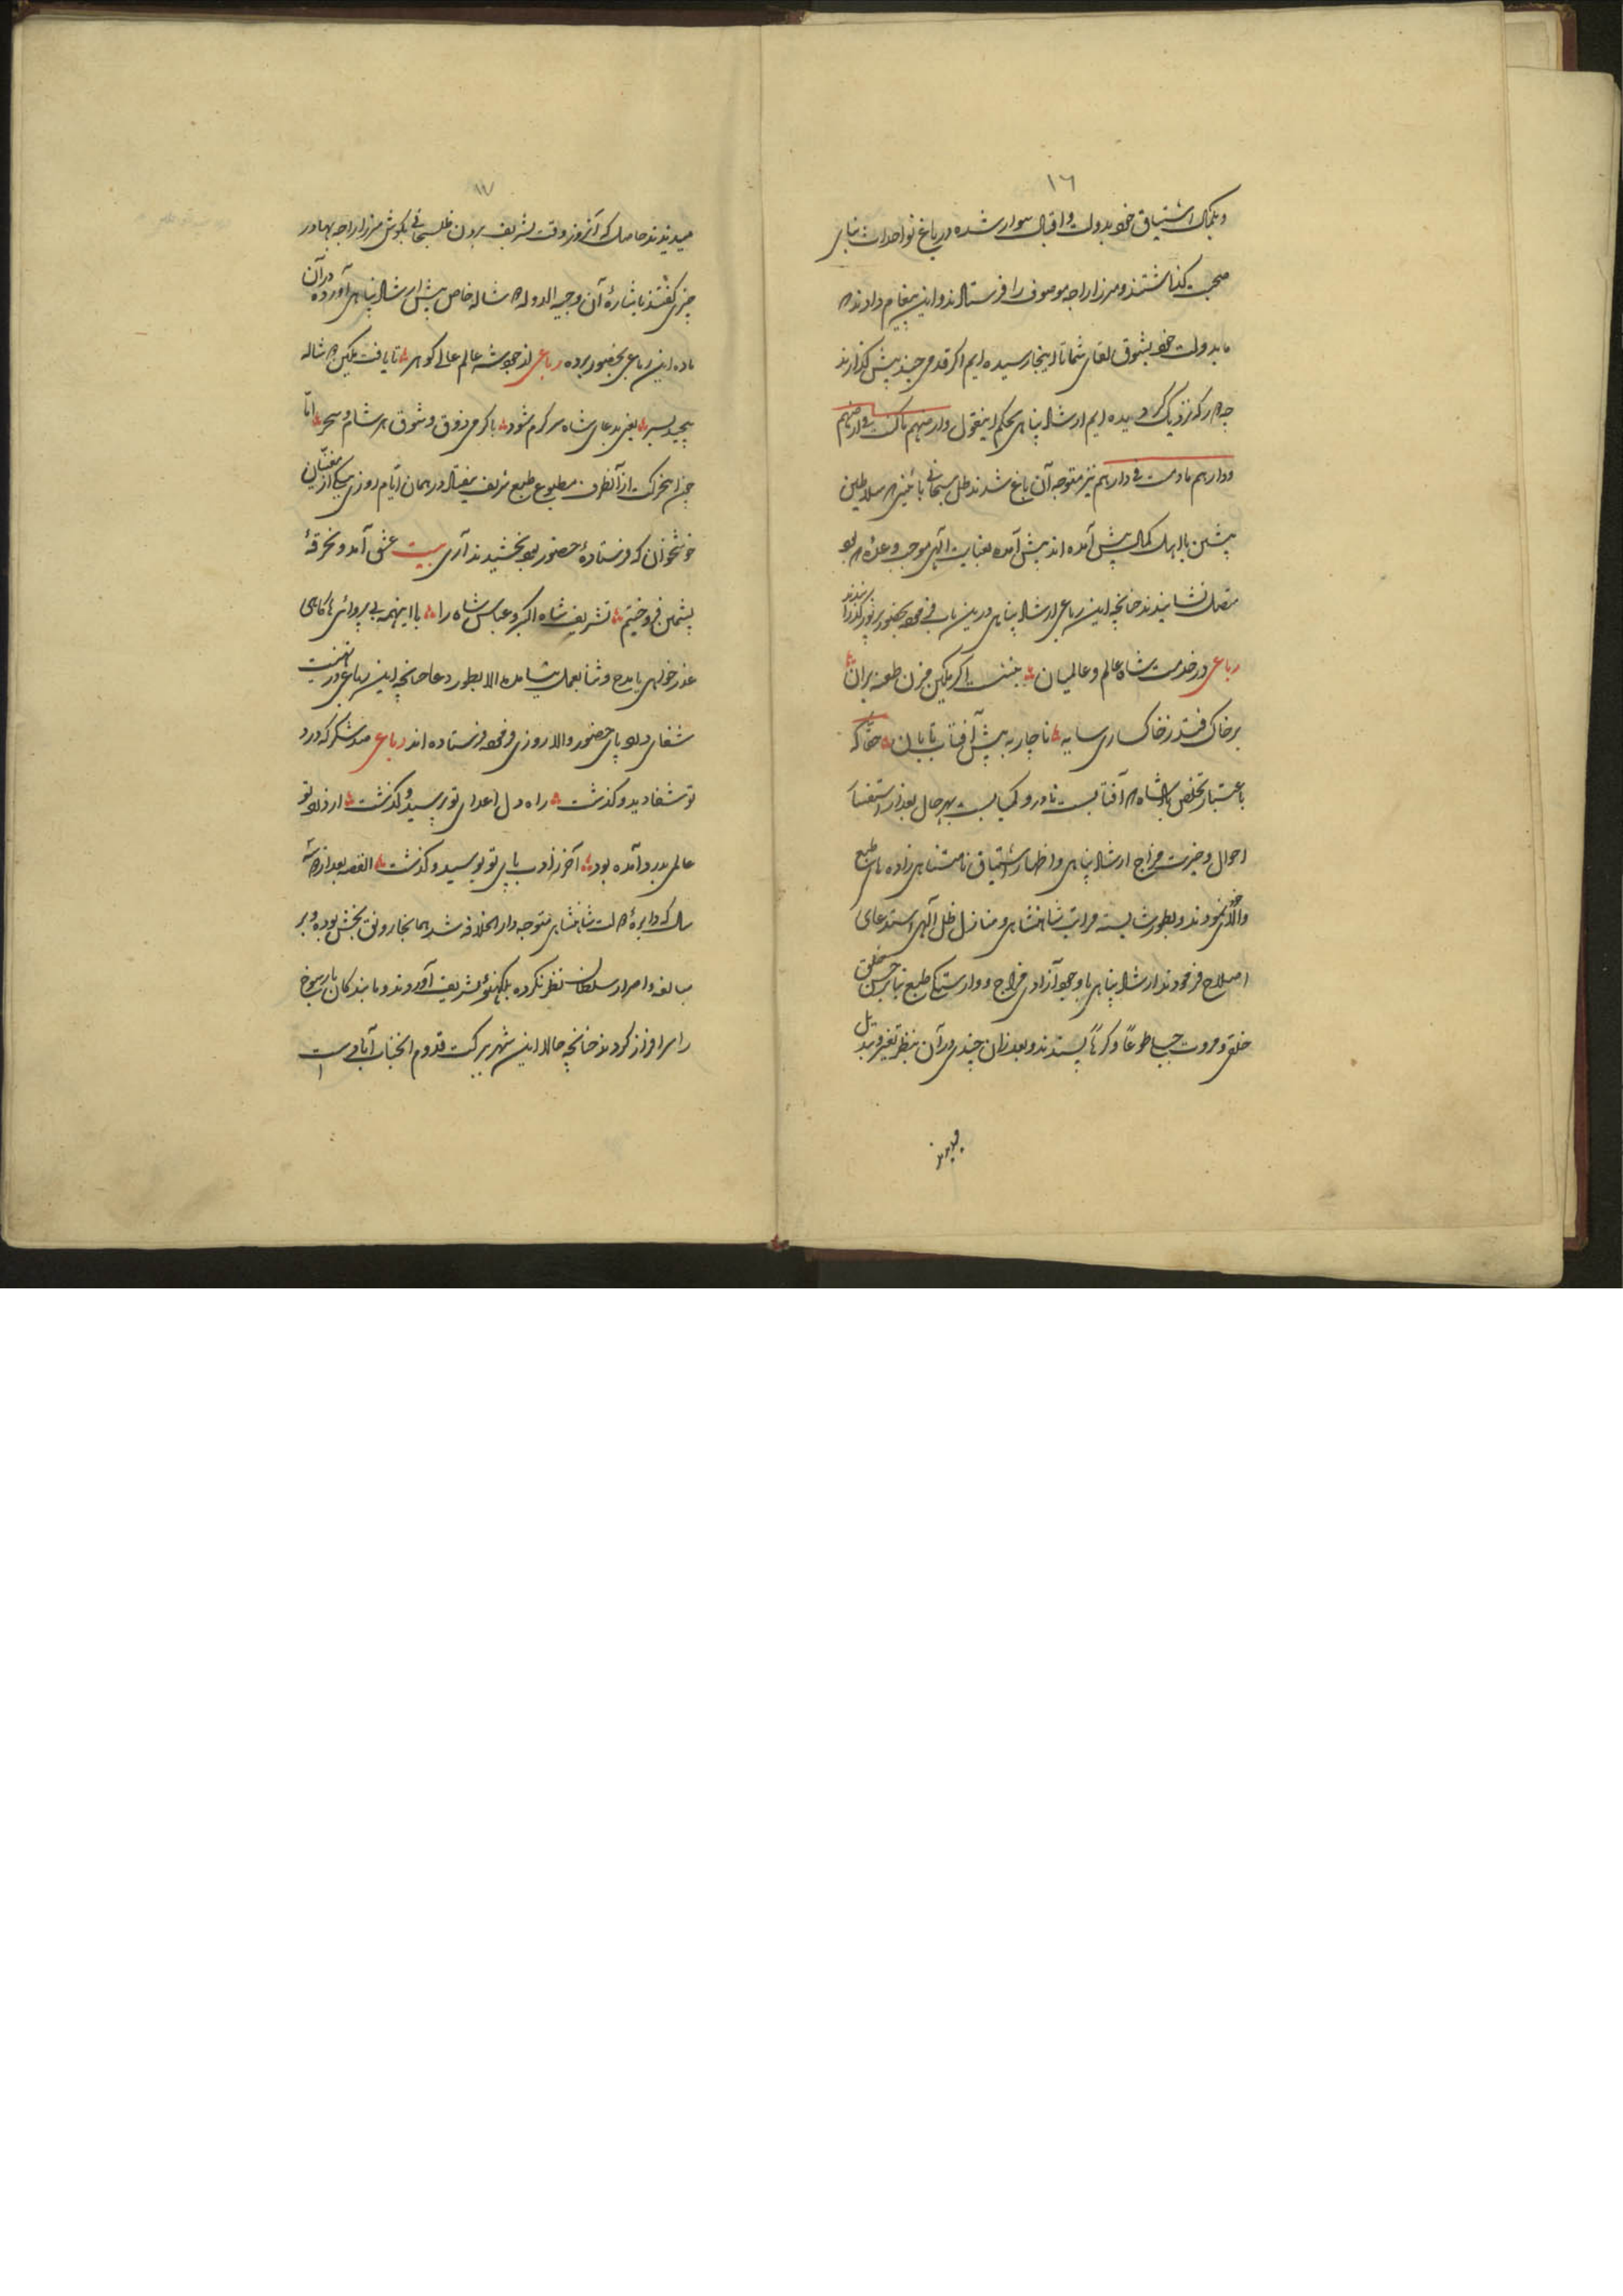 ١٦
و بکمال اشتیاق خود بدولت و اقبال سوار شده در باغ نو احداث بنای
صحبت گذاشتند و مرزا راجه موصوف را فرستادند و این پیغام دادند که
ما بدولت خود بشوق لقای شما تا اینجا رسیده ایم اگر قدمی چند پیش گذارند
چه که نزدیک گردیده ایم ارشاد پناهی بحکم اینقول دارهم ما کنت فی دارهم
و دارهم ما دمت فی دارهم نیز متوجه آن باغ شدند ظل سبحانی که سلاطین
پیشین با اهل کمال پیش آمده اند پیش آمده بعنایت الهی موجب وعده که بود
متصل نشانیدند چنانچه این رباعی ارشاد پناهی درین باب فرمود بحضور پرنور گذرانیدند
رباعی در خدمت شاه عالم و عالمیان بنشست اگر بکین حزین طعنه بران
بر خاک فتد ز خاکساری سایه ناچار به پیش آفتاب تابان حقا که
باعتبار تخلص پادشاه که آفتابست نادر و کمیابست بهر حال بعد از استفسار
احوال و خیریت مزاج ارشاد پناهی و اظهار اشتیاق نامتناهی زاده های طبع
والای خود نمودند و بطور شایسته مراتب شاهنشاهی و منازل ظل الهی استدعای
اصلاح فرمودند ارشاد پناهی با وجود آزادی مزاج و وارستگی طبع بنابر حسن خلق
خلق و مروت جبلی طوعاً و کرهاً پسندند و بعد ازان چندی در آن بنظر تغیر و تبدل
میدیدند
١٧
میدیدند حاصل که آنروز وقت تشریف بردن ظل سبحانی بگوش مرزا راجه بهادر
چیزی گفتند باشاره آن وجیه الدوله شاله خاص پیش ارشاد پناهی آورده در آن
ماده این رباعی بحضور برده رباعی از جود شه عالم عالی گوهر تا یافت بکین شاله
پیچید بسر یعنی بدعای شاه سرگرم شود با گرمی ذوق و شوق هر شام و سحر امّا
چون اینحرکت از آنطرف مطبوع طبع شریف نیفتاد در همان ایام روزی بیکی از مغنیان
خوشخوان که فرستاده حضور بود بخشیدند آری بیت عشق آمد و خرقهٔ
پشمین فروختیم تشریف شاه اکبر و عباس شاه را با اینهمه بی پروائی ها گاهی
عذر خواهی یا مدح و ثنا بعمل نیامده الا بطور دعا چنانچه این رباعی در تهنیت
شفای درد پای حضور والا روزی فرمود فرستاده اند رباعی صد شکر که درد
تو شفا دید و گذشت راه دل اعدای تو پرسید و گذشت از درد تو
عالمی بدرد آمده بود آخر ز ادب پای تو بوسید و گذشت القصه بعد از سه
سال که دایره دولت شاهنشاهی متوجه دار الخلافه شد همانجا رونق بخش بوده و بر
مبالغه و اصرار سلطان نظر نکرده بلکهنؤ تشریف آوردند و ما بندگان با رسوخ
را سرافراز کردند چنانچه حالا این شهر ببرکت قدوم آنجناب آبادیست